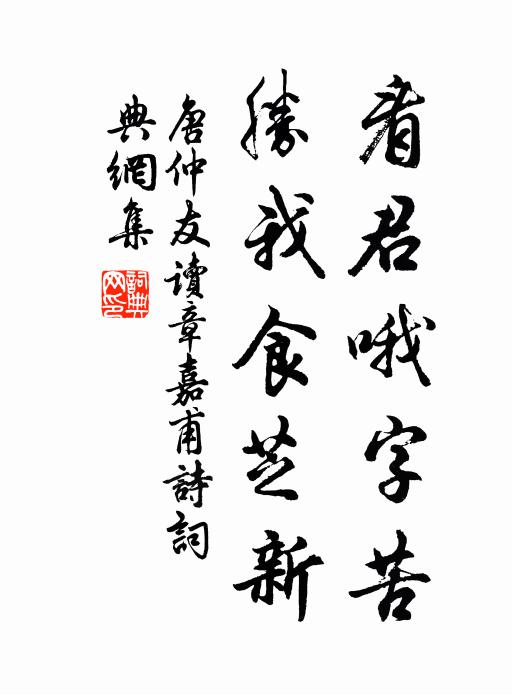 看君哦字苦
勝我食芝新
唐仲友讀章嘉甫詩詞
典網集
詞典網印